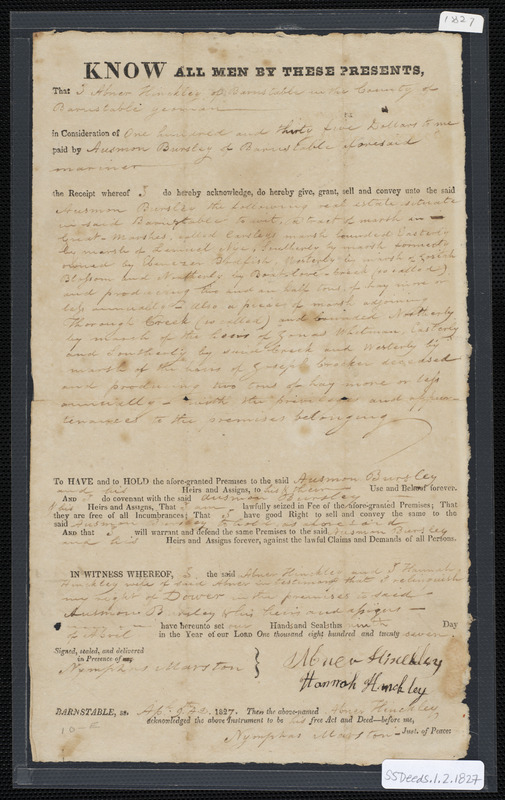 1827
KNOW ALL MEN BY THESE PRESENTS,
That I Abner Hinckley of Barnstable in the County of
Barnstable yeoman
in Consideration of One hundred and thirty five Dollars to me
paid by Ausmon Bursley of Barnstable aforesaid
mariner
the Receipt whereof I do hereby acknowledge, do hereby give, grant, sell and convey unto the said
Ausmon Bursley the following real estate situate
in said Barnstable to wit, a tract of marsh in
Great Marshes, called marsh bounded Easterly
by marsh of Southerly by marsh formerly
owned by Ebenezer Westerly by marsh of
Blossom and Northerly by (so called)
and producing two and an half tons of hay more or
less annually - also a piece of marsh adjoining
Thorough Creek (so called) and bounded Northerly
by marsh of the heirs of Jonas Whitman, Easterly
and Southerly by said Creek and Westerly by
marsh of the heirs of Joseph Crocker deceased
and producing two tons of hay more or less
annually - with the privileges and appur-
tenances to the premises belonging
To HAVE and to HOLD the afore-granted Premises to the said Ausmon Bursley
and his Heirs and Assigns, to his & their Use and Behoof forever.
AND I do covenant with the said Ausmon Bursley
& his Heirs and Assigns, That I am lawfully seized in Fee of the afore-granted Premises; That
they are free of all Incumbrances; That I have good Right to sell and convey the same to the
said Ausmon Bursley to hold as aforesaid
And that I will warrant and defend the same Premises to the said Ausmon Bursley
and his Heirs and Assigns forever, against the lawful Claims and Demands of all Persons.
IN WITNESS WHEREOF, I, the said Abner Hinckley and I Hannah
Hinckley wife of said Abner in testament that I relinquish
my right of Dower in the premises to said
Ausmon Bursley & his heirs and assigns
have hereunto set our Hands and Seals this ninth Day
of April in the Year of our LORD One thousand eight hundred and twenty seven.
Signed, sealed, and delivered
in Presence of
Nymphas Marston
Abner Hinckley
Hannah Hinckley
BARNSTABLE, ss. Apl. 9th 1827. Then the above-named Abner Hinckley
acknowledged the above Instrument to be his free Act and Deed—before me,
Nymphas Marston Just. of Peace
SSDeeds.1.2.1827